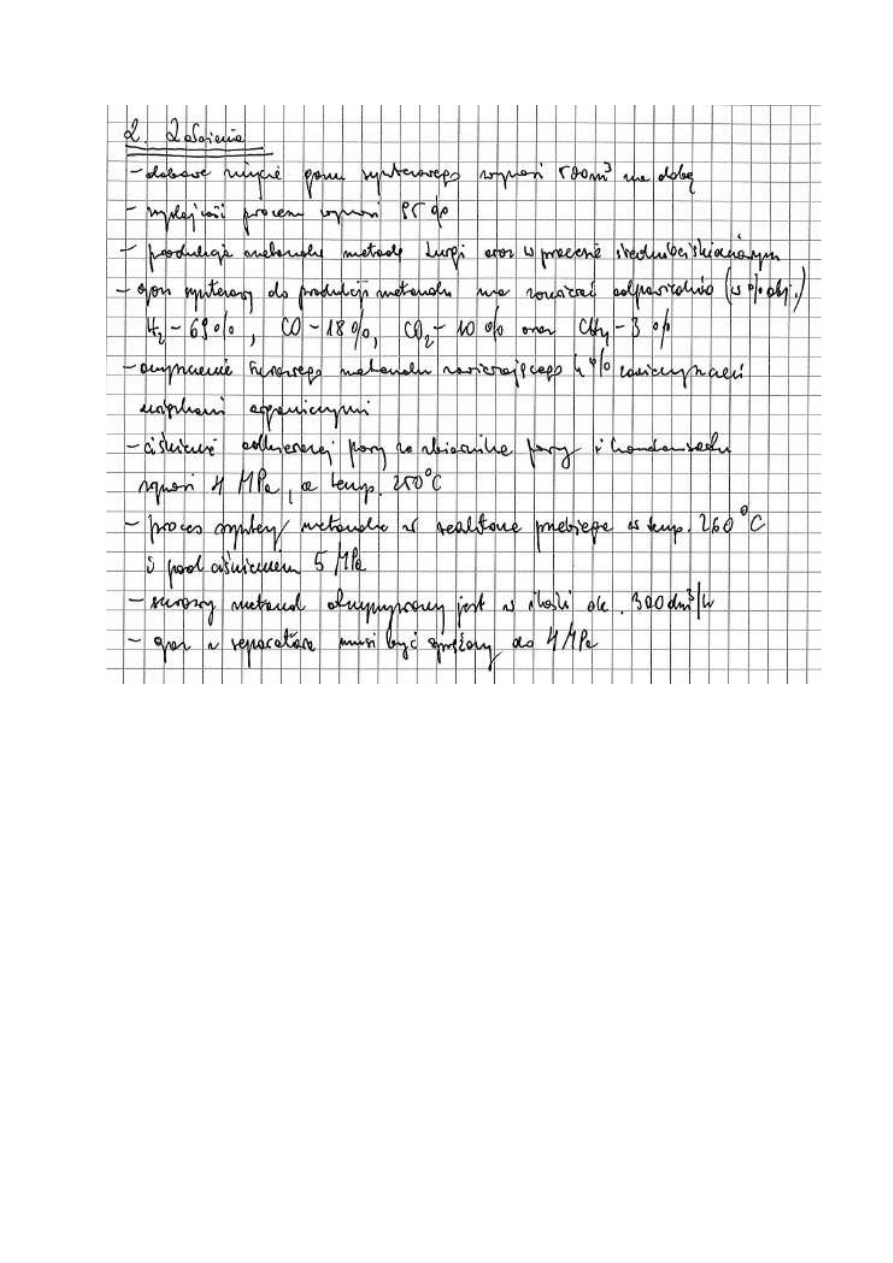 2. Założenia
- dobowe zużycie gazu syntezowego wynosi 500m³ na dobę
- wydajność procesu wynosi 95 %
- produkcja metanolu metodą Lurgi oraz w procesie średniociśnieniowym
- gaz syntezowy do produkcji metanolu ma zawierać odpowiednio (w % obj.)
H₂ - 69%, CO - 18%, CO₂ - 10 % oraz CH₄ - 3 %
- oczyszczenie surowego metanolu zawierającego 4 % zanieczyszczeń
związkami organicznymi
- ciśnienie odbieranej pary ze zbiornika pary i kondensatu
wynosi 4 MPa, a temp. 250°C
- proces syntezy metanolu w reaktorze przebiega w temp. 260°C
i pod ciśnieniem 5 MPa
- surowy metanol otrzymywany jest w ilości ok. 300 dm³/h
- gaz w separatorze musi być sprężony do 4 MPa